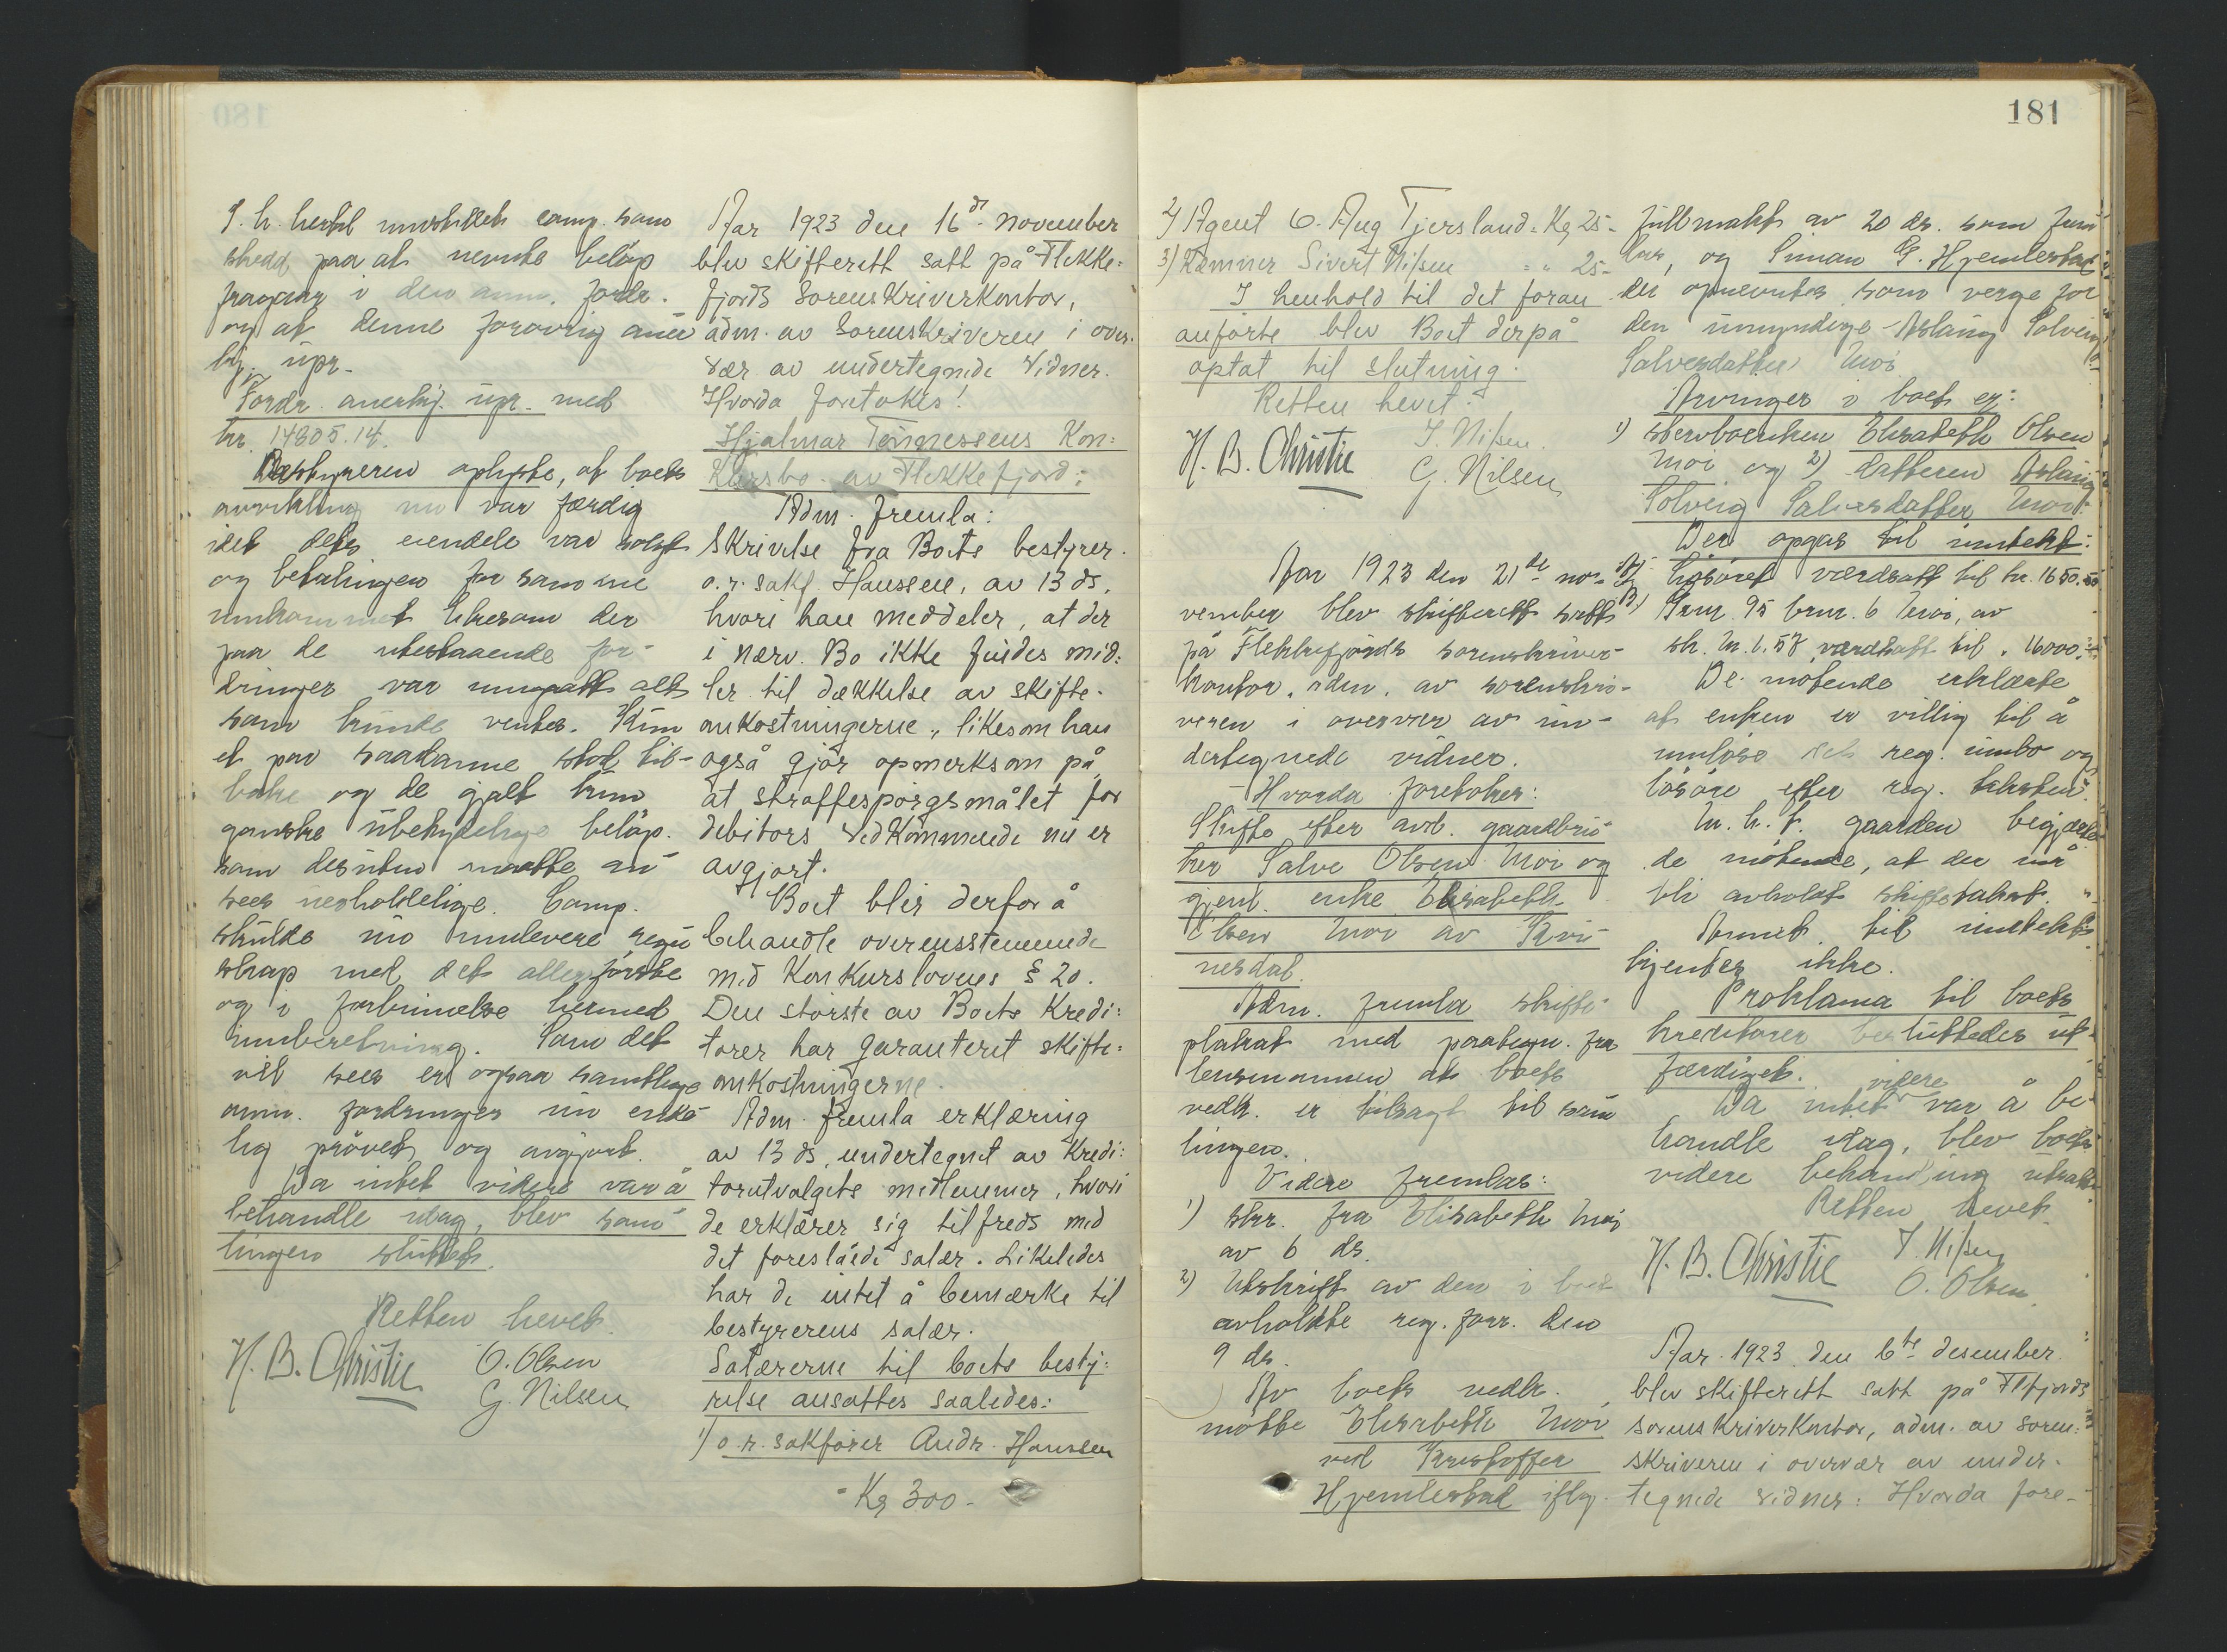 181
I. h. hertil innstilles comp. som
skedd paa at nevnte beløp
fragaar i den anm. fordr.
og at denne forøvrig aner
kj. upr.
Fordr. anerkj. upr. med
kr. 14805.14.
Bestyreren oplyste, at boets
avvikling nu var færdig
idet dets eiendele var solgt
og betalingen for samme
innkommet likesom der
paa de utestaaende for-
dringer var inngaatt alt
som kunde ventes. Kun
et par saadanne stod til-
bake og de gjalt kun
ganske ubetydelige beløp.
som desuten maatte an-
sees uerholdelige. Comp.
skulde nu innlevere regn
skap med det allerførste
og i forbinnelse hermed
innberetning. Som det
vil sees er ogsaa samtlige
anm. fordringer nu ende
lig prøvet og avgjort.
Da intet videre var å
behandle idag, blev sam-
lingen sluttet.
Retten hevet.
H. B. Christie O. Olsen
G. Nilsen
Aar 1923 den 16de november
blev skifterett satt på Flekke-
fjords Sorenskriverkontor,
adm. av Sorenskriveren i over-
vær av undertegnede Vidner.
Hvorda foretokes:
Hjalmar Tønnessens Kon-
kursbo av Flekkefjord:
Adm. fremla:
Skrivelse fra Boets bestyrer
o.r. sakf. Hanssen, av 13 ds,
hvori han meddeler, at der
i nærv. Bo ikke findes mid-
ler til dækkelse av skifte-
omkostningerne, likesom han
også gjør opmerksom på
at straffespørgsmålet for
debitors Vedkommende nu er
avgjort.
Boet blir derfor å
behandle overensstemmende
med Konkurslovens § 20.
Den største av Boets Kredi-
torer har garanteret skifte-
omkostningerne.
Adm. fremla erklæring
av 13 ds, undertegnet av Kredi-
torutvalgets medlemmer, hvori
de erklærer sig tilfreds med
det foreslåede salær. Likeledes
har de intet å bemærke til
bestyrerens salær.
Salærerne til boets besty-
relse ansattes saaledes:
1) o.r. sakfører Andr. Hanssen
Kr 300-
2) Agent O. Aug Tjersland. Kr 25-
3) Kæmner Sivert Nilsen " " 25-
I henhold til det foran
anførte blev Boet derpå
optat til slutning.
Retten hevet.
H. B. Christie S. Nilsen.
G. Nilsen
Aar 1923 den 21de no-
vember blev skifterett satt
på Flekkefjords sorenskriver-
kontor, adm. av sorenskri-
veren i overvær av un-
dertegnede vidner.
Hvorda foretokes:
Skifte efter avd. gaardbru-
ker Salve Olsen Moi og
gjenl. enke Elisabeth
Olsen Moi av Kvi-
nesdal.
Adm. fremla skifte-
plakat med paategn. fra
lensmannen at boets
vedk. er tilsagt til sam
lingen.
Videre fremlas:
1) skr. fra Elisabeth Moi
av 6 ds.
2) Utskrift av den i boet
avholdte reg. forr. den
9 ds.
Av boets vedk.
møtte Elisabeth Moi
ved Kristoffer
Hjemlestad iflg.
fullmakt av 20 ds. som frem
las, og Simon G. Hjemlestad
der opnevntes som verge for
den umyndige Aslaug Solveig
Salvesdatter Moi
Arvinger i boet er:
1) stervboenken Elisabeth Olsen
Moi og 2) datteren Aslaug
Solveig Salvesdatter Moi.
Der opgas til inntekt:
A) Løsøret værdsatt til kr. 1650.50
B) Grnr. 95 brnr. 6 Moi, av
sk. m. 1.58 værdsatt til " 16000.
De møtende erklærte
at enken er villig til å
innløse det reg. innbo og
løsøre efter reg. taksten.
M. h. t. gaarden begjærte
de møtende, at der må
bli avholdt skiftetakst.
Annet til inntekt
kjentes ikke.
Proklama til boets
kreditorer besluttedes ut-
færdiget.
Da intet videre var å be-
handle idag, blev boets
videre behandling utsatt
Retten hevet.
H. B. Christie S. Nilsen
O. Olsen
Aar 1923 den 6te desember
blev skifterett satt på Flfjords
sorenskriverkontor, adm. av soren-
skriveren i overvær av under-
tegnede vidner: Hvorda fore-